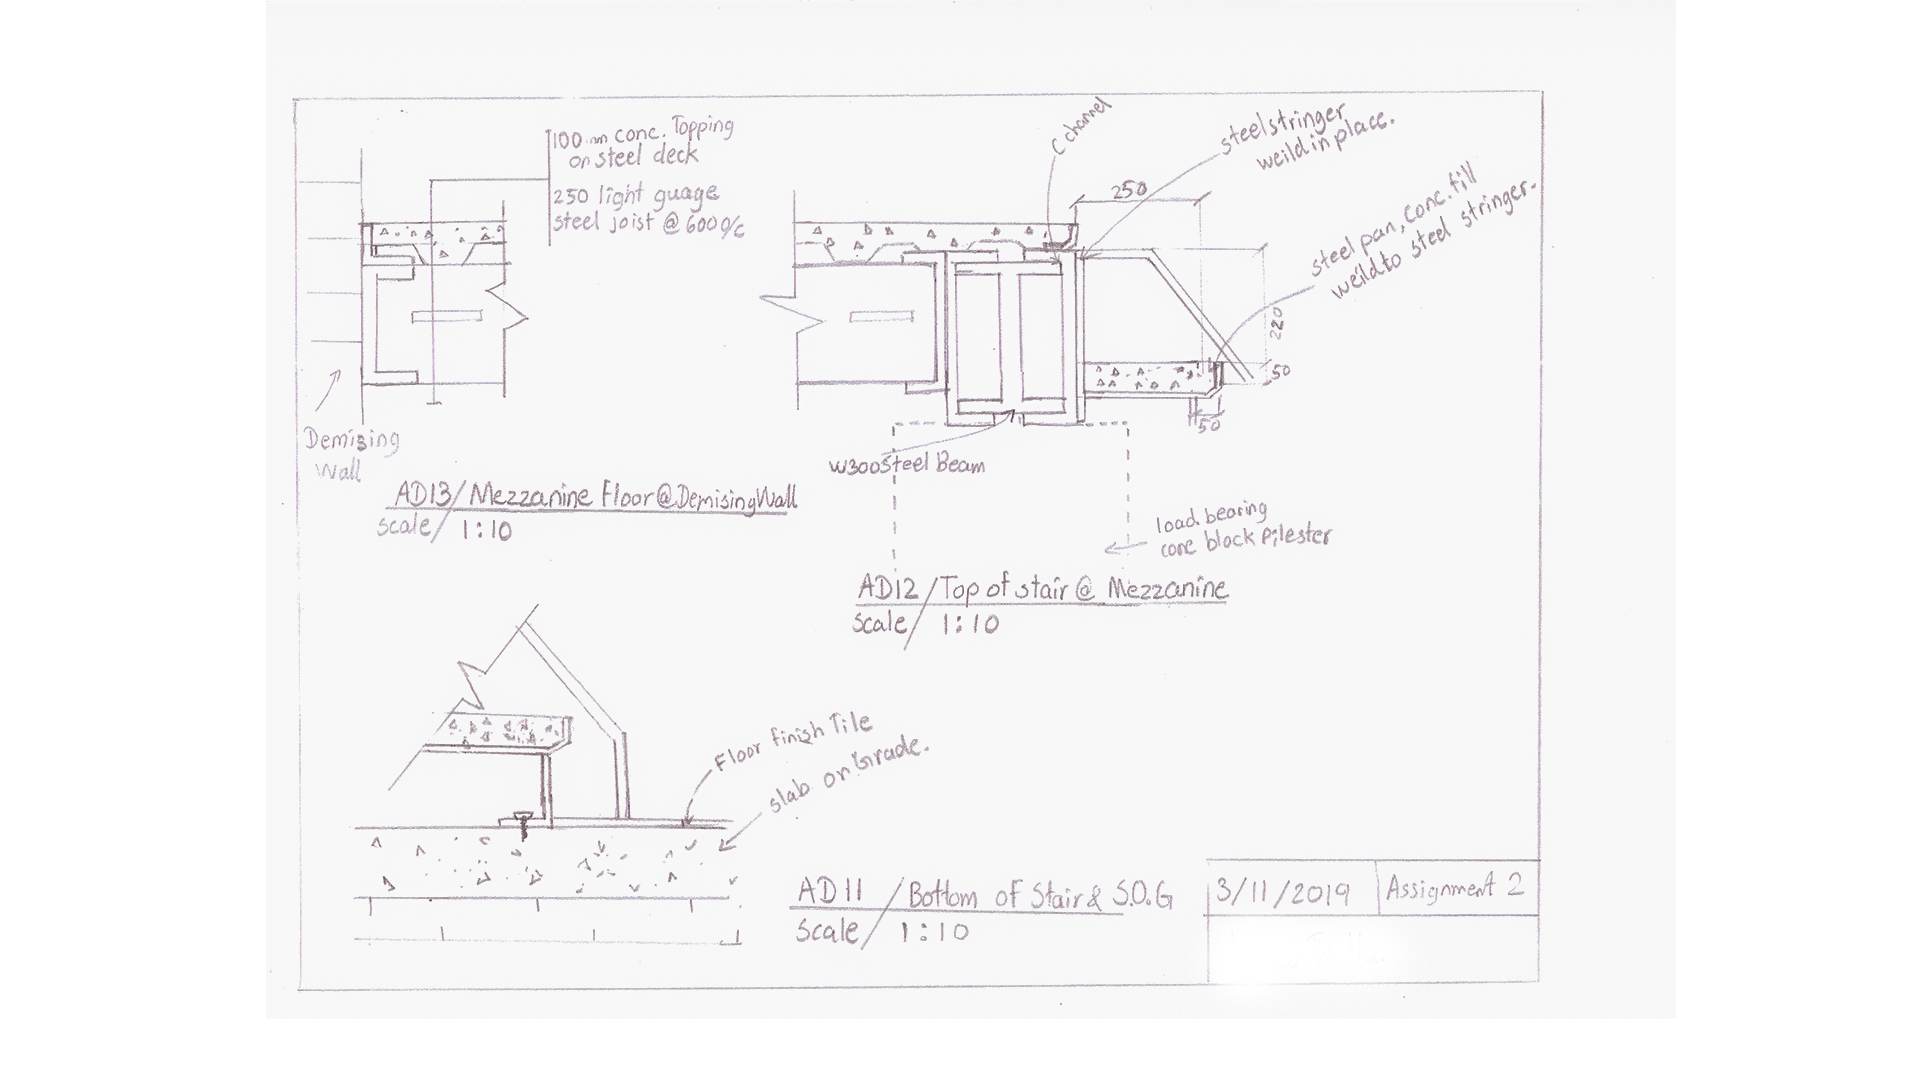 100mm conc. Topping
on steel deck
250 light guage
steel joist @ 600 o/c
Demising
Wall
AD13/Mezzanine Floor@DemisingWall
scale/ 1:10
C channel
steel stringer
weild in place.
250
steel pan, conc. fill
weild to steel stringer.
220
50
50
W300 Steel Beam
load bearing
conc block Pilester
AD12/Top of stair @ Mezzanine
scale/ 1:10
Floor finish Tile
slab on Grade.
AD11/Bottom of Stair & S.O.G
scale/ 1:10
3/11/2019 Assignment 2